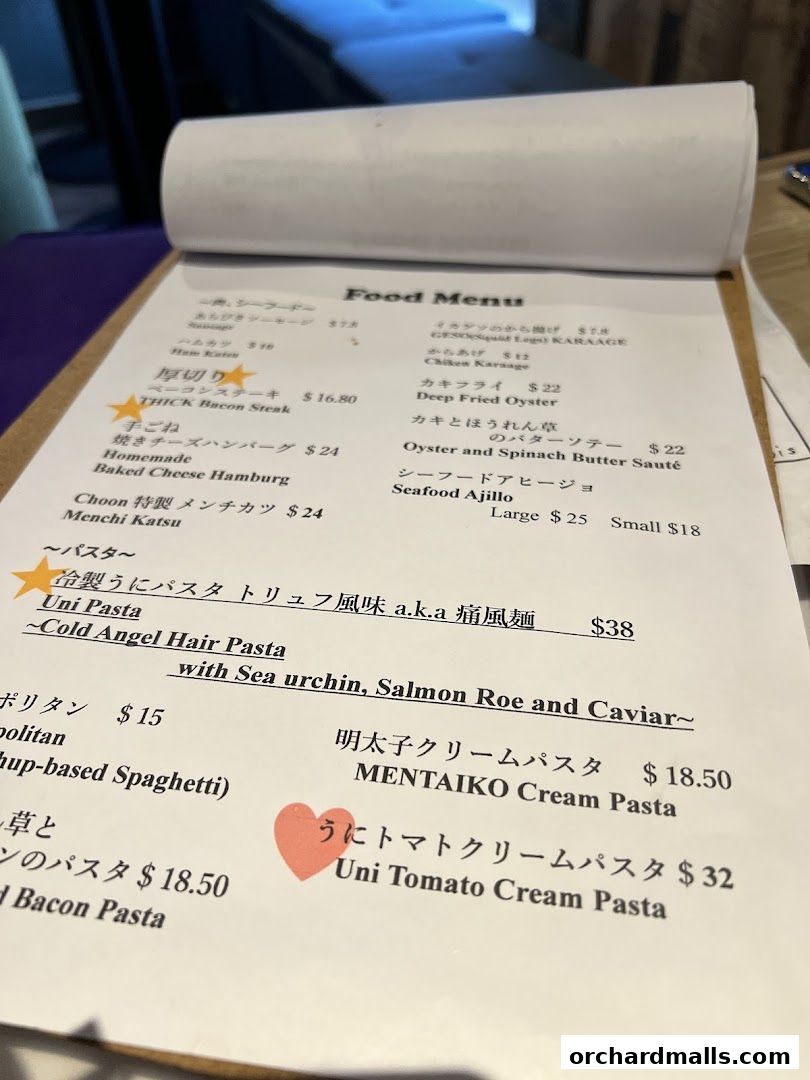 Food Menu
～肉、シーフード～
あらびきソーセージ $7.8
Sausage
ハムカツ $10
Ham Katsu
厚切り
ベーコンステーキ $16.80
THICK Bacon Steak
手ごね
焼きチーズハンバーグ $24
Homemade
Baked Cheese Hamburg
Choon 特製 メンチカツ $24
Menchi Katsu
イカゲソのから揚げ $7.8
GESO(Squid Legs) KARAAGE
からあげ $12
Chiken Karaage
カキフライ $22
Deep Fried Oyster
カキとほうれん草
のバターソテー $22
Oyster and Spinach Butter Sauté
シーフードアヒージョ
Seafood Ajillo
Large $25 Small $18
～パスタ～
冷製うにパスタ トリュフ風味 a.k.a 痛風麺 $38
Uni Pasta
~Cold Angel Hair Pasta
with Sea urchin, Salmon Roe and Caviar~
ポリタン $15
politan
hup-based Spaghetti)
ん草と
ンのパスタ $18.50
d Bacon Pasta
明太子クリームパスタ $18.50
MENTAIKO Cream Pasta
うにトマトクリームパスタ $32
Uni Tomato Cream Pasta
orchardmalls.com